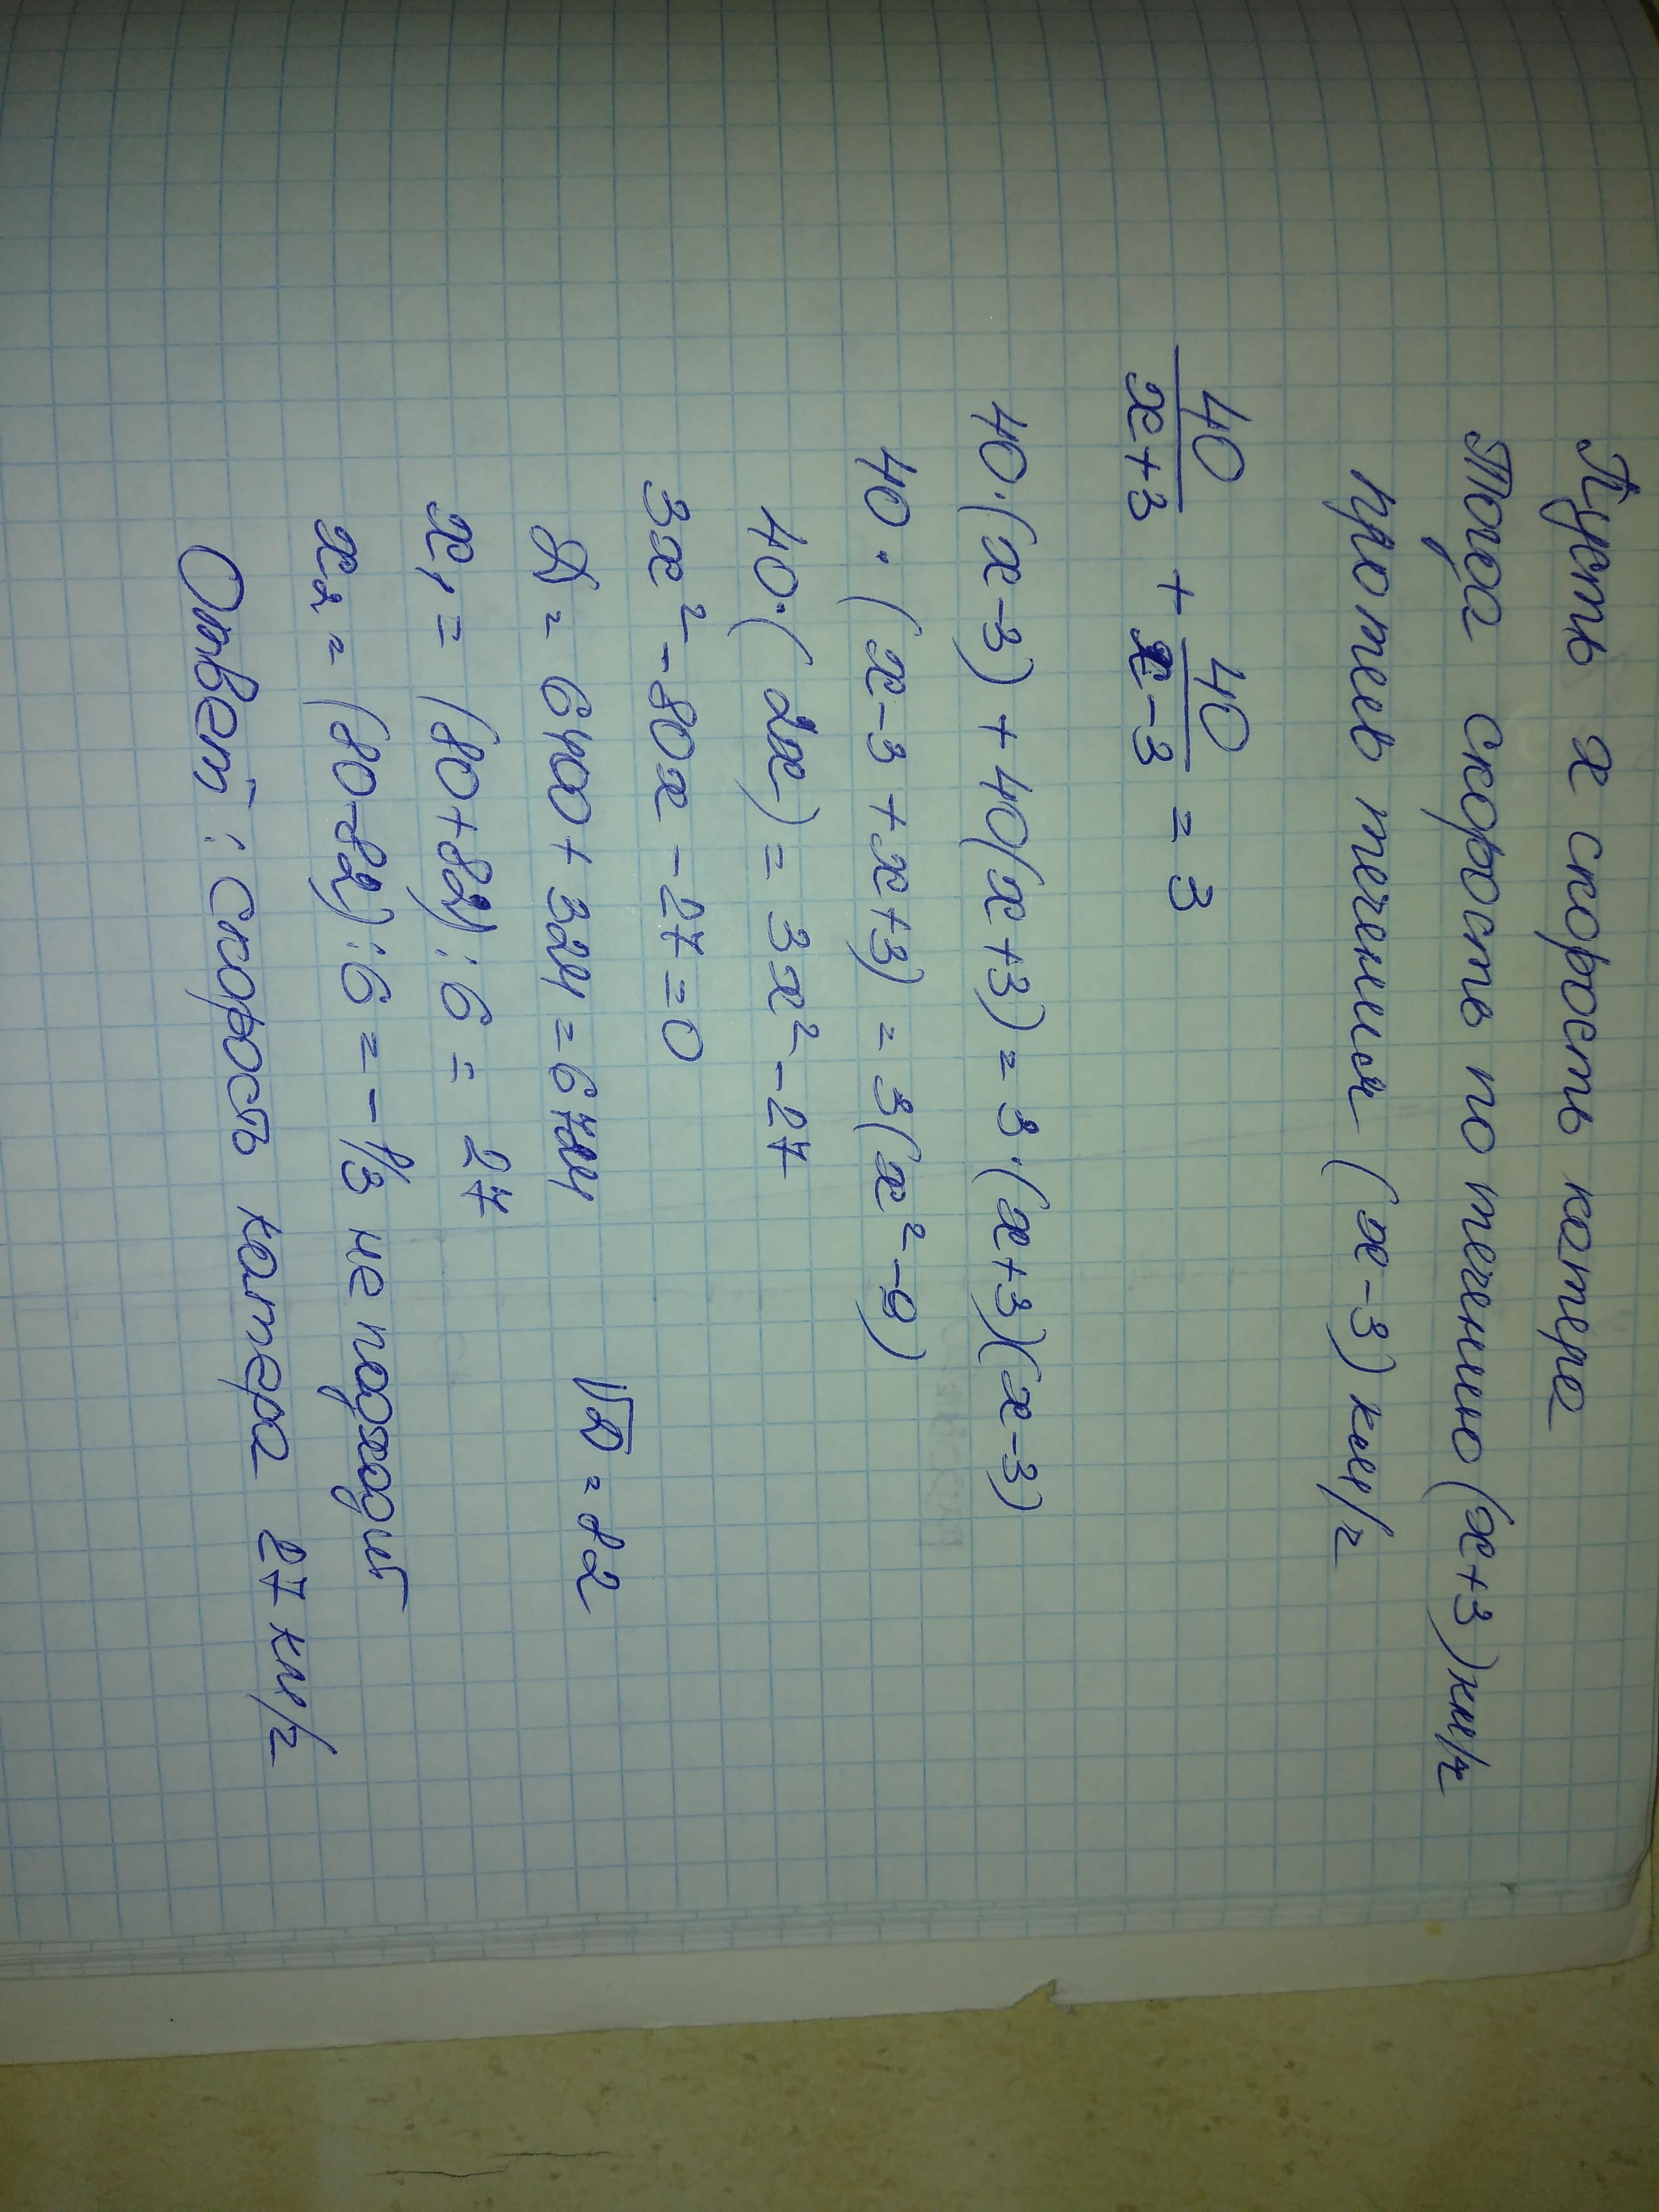 Пусть x скорость катера
Тогда скорость по течению (x+3) км/ч
против течения (x-3) км/ч
40/(x+3) + 40/(x-3) = 3
40·(x-3) + 40(x+3) = 3·(x+3)(x-3)
40·(x-3+x+3) = 3(x²-9)
40·(2x) = 3x²-27
3x²-80x-27=0
D = 6400+324=6724 √D = 82
x₁ = (80+82):6 = 27
x₂ = (80-82):6 = -1/3 не подходит
Ответ: скорость катера 27 км/ч